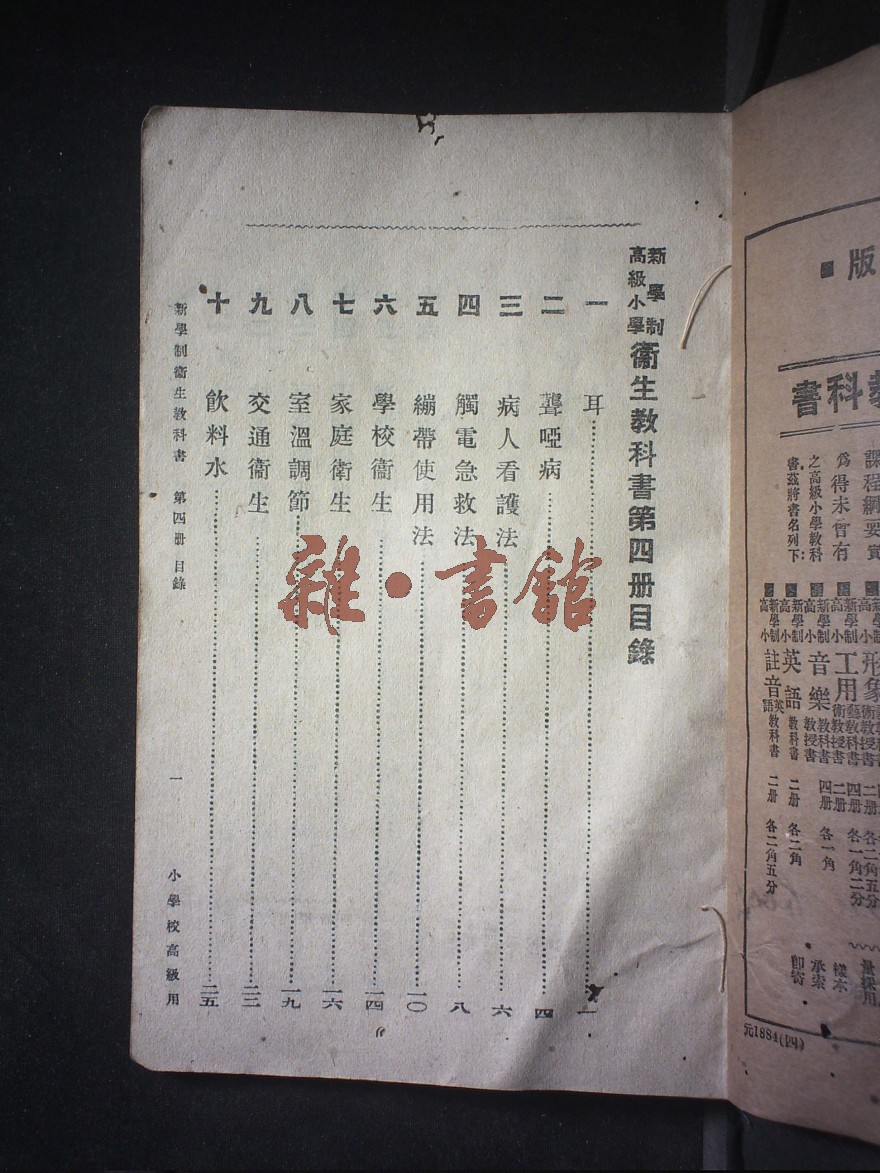 新學制
高級小學
衞生教科書第四册目錄
一 耳 一
二 聾啞病 四
三 病人看護法 六
四 觸電急救法 八
五 繃帶使用法 一〇
六 學校衞生 一四
七 家庭衞生 一六
八 室溫調節 一九
九 交通衞生 二三
十 飲料水 二五
新學制衞生教科書 第四册 目錄 一 小學校高級用
雜·書館
版
教科書
課程綱要
爲得未曾有
之高級小學教科
書茲將書名列下：
新學制高小 形象藝術教授書
新學制高小 工用藝術教科書教授書 四册 二册 各一角二分
新學制高小 音樂教科書教授書 四册 各一角
新學制高小 英語教科書 二册 各二角
新學制高小 註音英語教科書 二册 各二角五分
樣本
承索
卽寄
元1884(四)